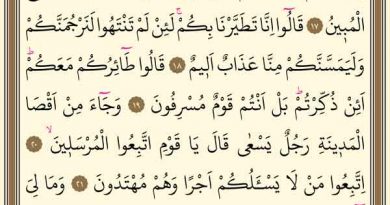 الْمُب۪ينُ ﴿١٧﴾ قَالُٓوا اِنَّا تَطَيَّرْنَا بِكُمْۚ لَئِنْ لَمْ تَنْتَهُوا لَنَرْجُمَنَّكُمْ
وَلَيَمَسَّنَّكُمْ مِنَّا عَذَابٌ اَل۪يمٌ ﴿١٨﴾ قَالُوا طَٓائِرُكُمْ مَعَكُمْۜ
اَئِنْ ذُكِّرْتُمْۜ بَلْ اَنْتُمْ قَوْمٌ مُسْرِفُونَ ﴿١٩﴾ وَجَٓاءَ مِنْ اَقْصَا
الْمَد۪ينَةِ رَجُلٌ يَسْعٰى قَالَ يَا قَوْمِ اتَّبِعُوا الْمُرْسَل۪ينَۙ ﴿٢٠﴾
اِتَّبِعُوا مَنْ لَا يَسْـَٔلُكُمْ اَجْرًا وَهُمْ مُهْتَدُونَ ﴿٢١﴾ وَمَا لِيَ